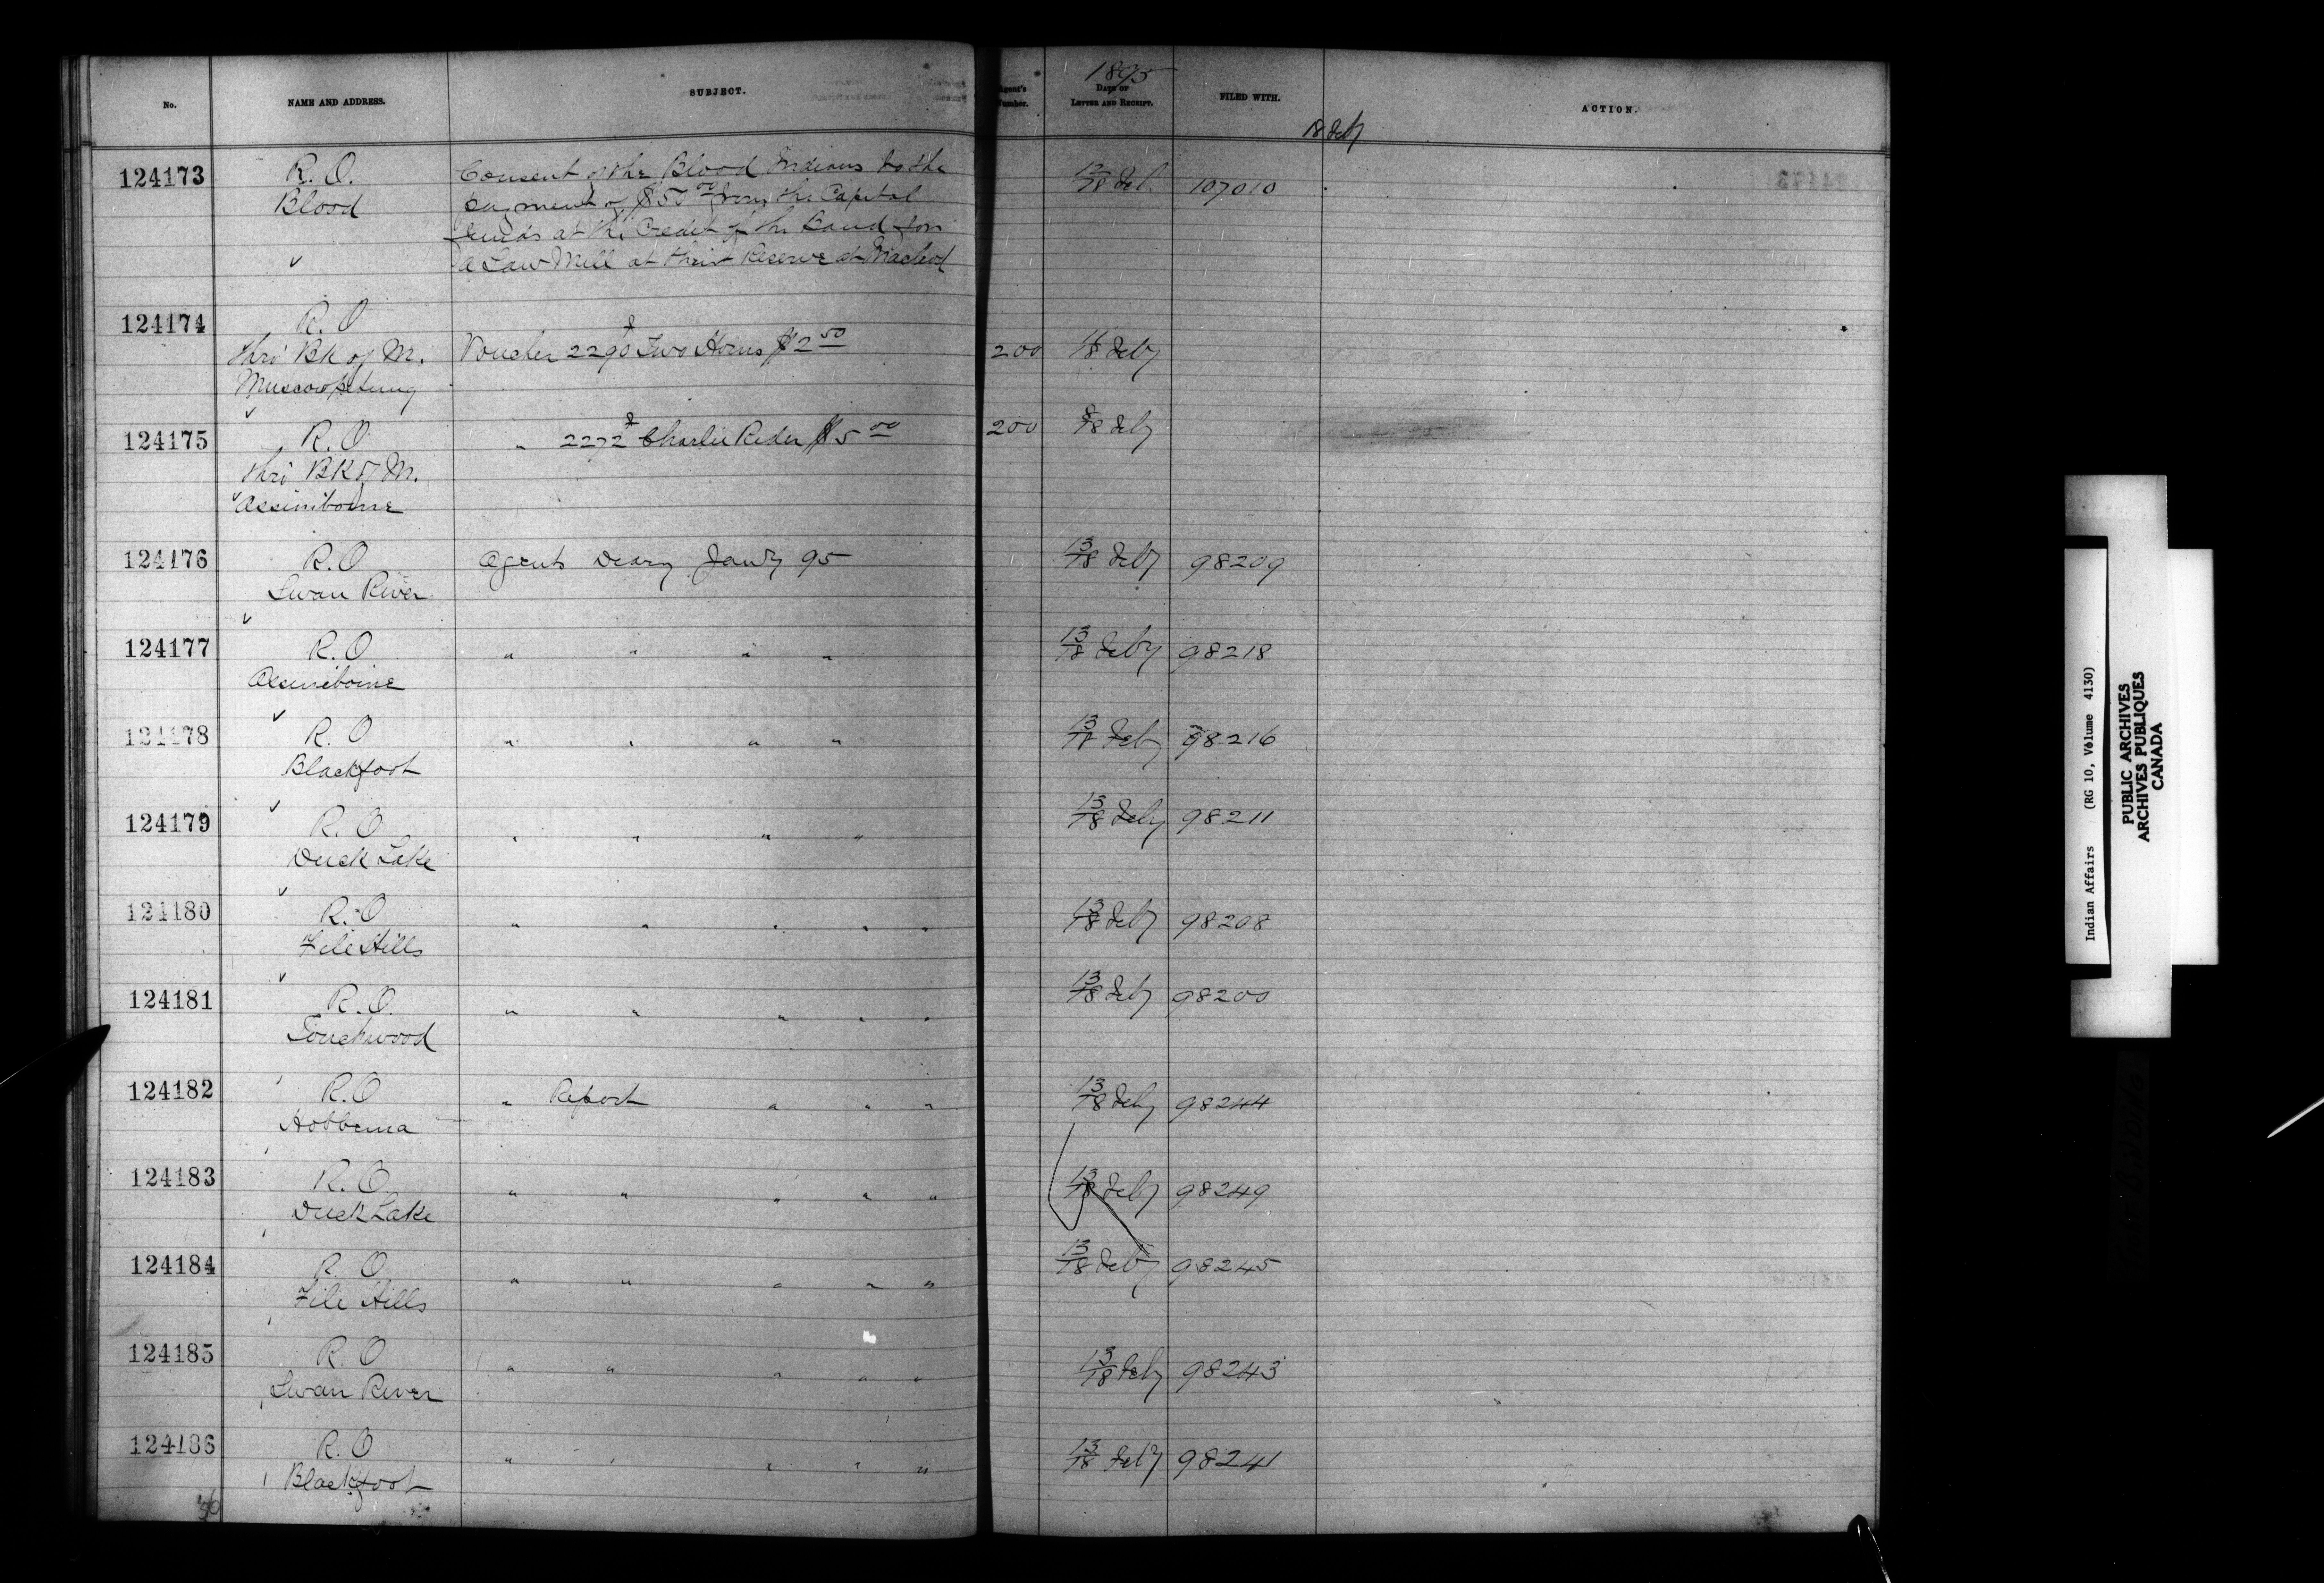 1895
No. NAME AND ADDRESS. SUBJECT. Agent's Number. DATE OF LETTER AND RECEIPT. FILED WITH. ACTION.
18 Feby
124173 R. O. Consent of the Blood Indians to the 12/18 Feb. 107010
Blood payment of $50 00 from the Capital
funds at the Credit of the Band for
✓ a Saw Mill at their Reserve at Macleod
124174 R. O
thro' Bk of M. Voucher 2290 Two Horns $2 50 200 /18 Feby
Muscowpetung
✓
124175 R. O. " 2272 Charlie Rider $5 00 200 8/18 Feby
thro' BK of M.
✓ Assiniboine
124176 R. O Agents Diary Jany 95 13/18 Feby 98209
Swan River
✓
124177 R. O " " " " 13/18 Feby 98218
Assiniboine
✓
124178 R. O " " " " 13/18 Feby 98216
Blackfoot
✓
124179 R. O " " " " 13/18 Feby 98211
Duck Lake
✓
124180 R. O " " " " " 13/18 Feby 98208
File Hills
✓
124181 R. O. " " " " " 13/18 Feby 98200
Touchwood
124182 R. O " Report " " " 13/18 Feby 98244
Hobbema
124183 R. O " " " " " 13/18 Feby 98249
Duck Lake
124184 R. O " " " " " 13/18 Feby 98245
File Hills
124185 R. O " " " " " 13/18 Feby 98243
Swan River
124186 R. O " " " " " 13/18 Feby 98241
Blackfoot
Indian Affairs (RG 10, Volume 4130)
PUBLIC ARCHIVES
ARCHIVES PUBLIQUES
CANADA